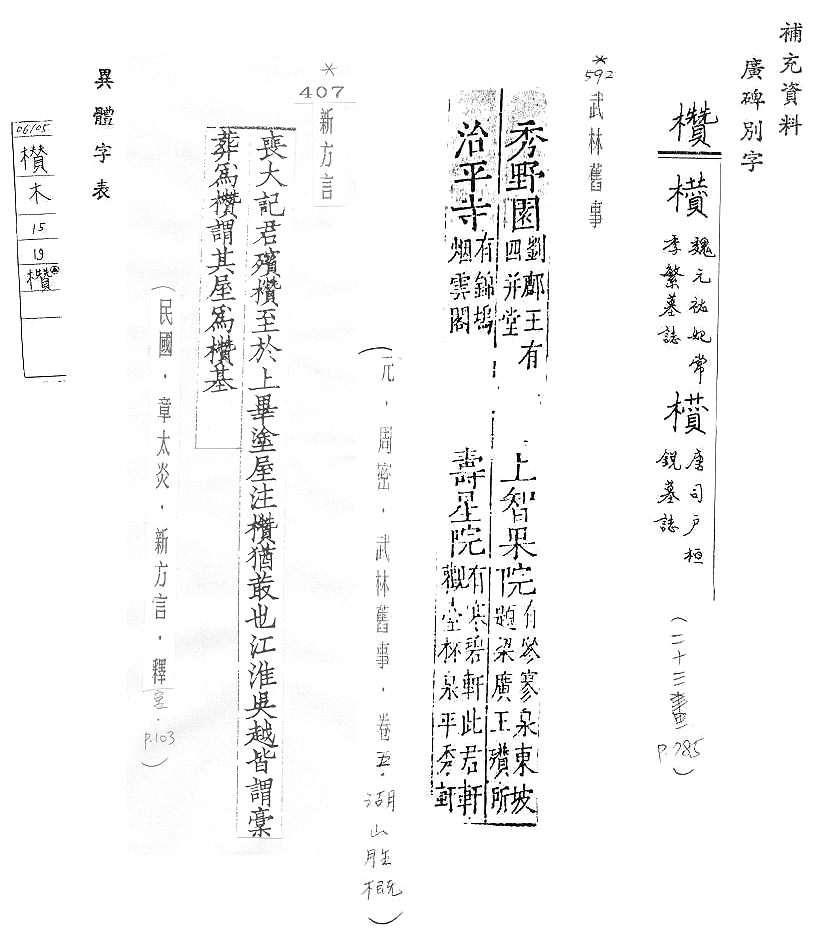 補充資料
廣碑別字
欑
櫕 魏元祐妃常
季繁墓誌
唐司戶桓
銳墓誌
(二十三畫
P.285)
*
592
武林舊事
秀野園 劉鄜王有
四并堂
治平寺 有錦塢
烟雲閣
上智果院 有參寥泉東坡
題梁廣王殯所
壽星院 有寒碧軒此君軒
觀臺杯泉平秀軒
(元.周密.武林舊事.卷五.湖山胜概)
*
407
新方言
喪大記君殯欑至於上畢塗屋注欑猶菆也江淮吳越皆謂槀
葬為欑謂其屋為欑基
(民國.章太炎.新方言.釋宮.
P.103)
異體字表
06105
木
15
19
欑